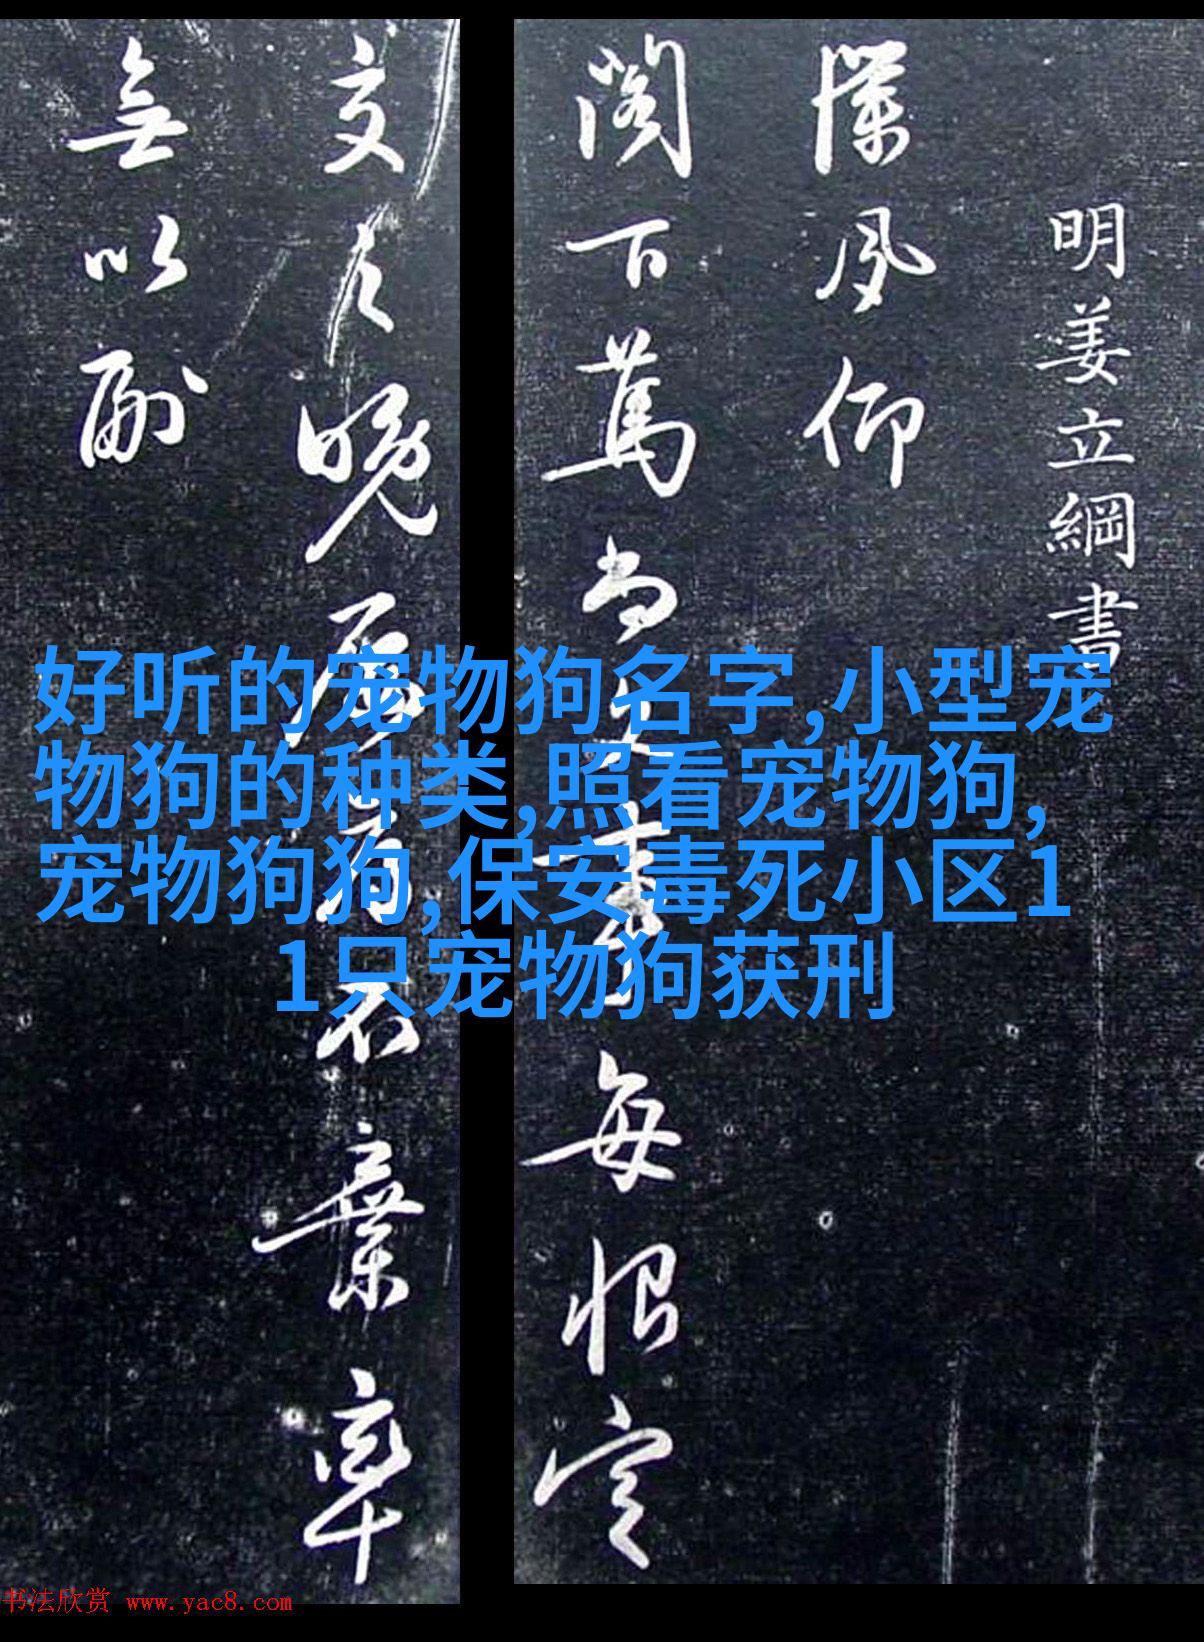 明姜立綱書
僕夙仰
閣下萬尚
每恨定
交之晚屬
不棄率
無以副
好听的宠物狗名字,小型宠
物狗的种类,照看宠物狗,
宠物狗狗,保安毒死小区1
1只宠物狗获刑
书法欣赏 www.yac8.com